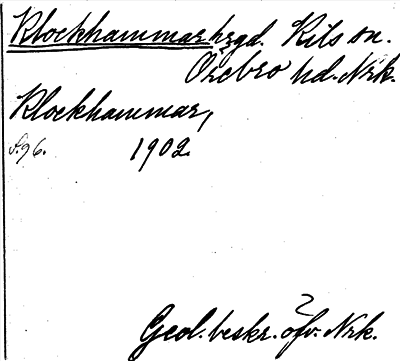 Klockhammar hrgd. Kils sn.
Örebro hd. Nrk.
Klockhammar,
S. 96. 1902.
Geol. beskr. öfv. Nrk.